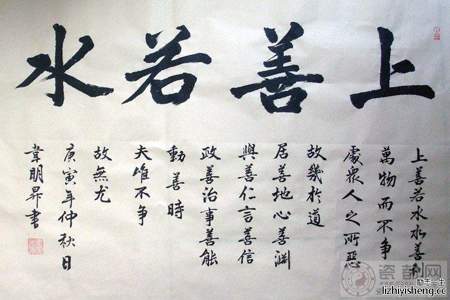 上善若水
上善若水水善利
萬物而不争
處衆人之所惡
故幾於道
居善地心善淵
與善仁言善信
政善治事善能
動善時
夫唯不争
故無尤
庚寅年仲秋日
韋明昇書
瓷都网
lizhiyisheng.cc